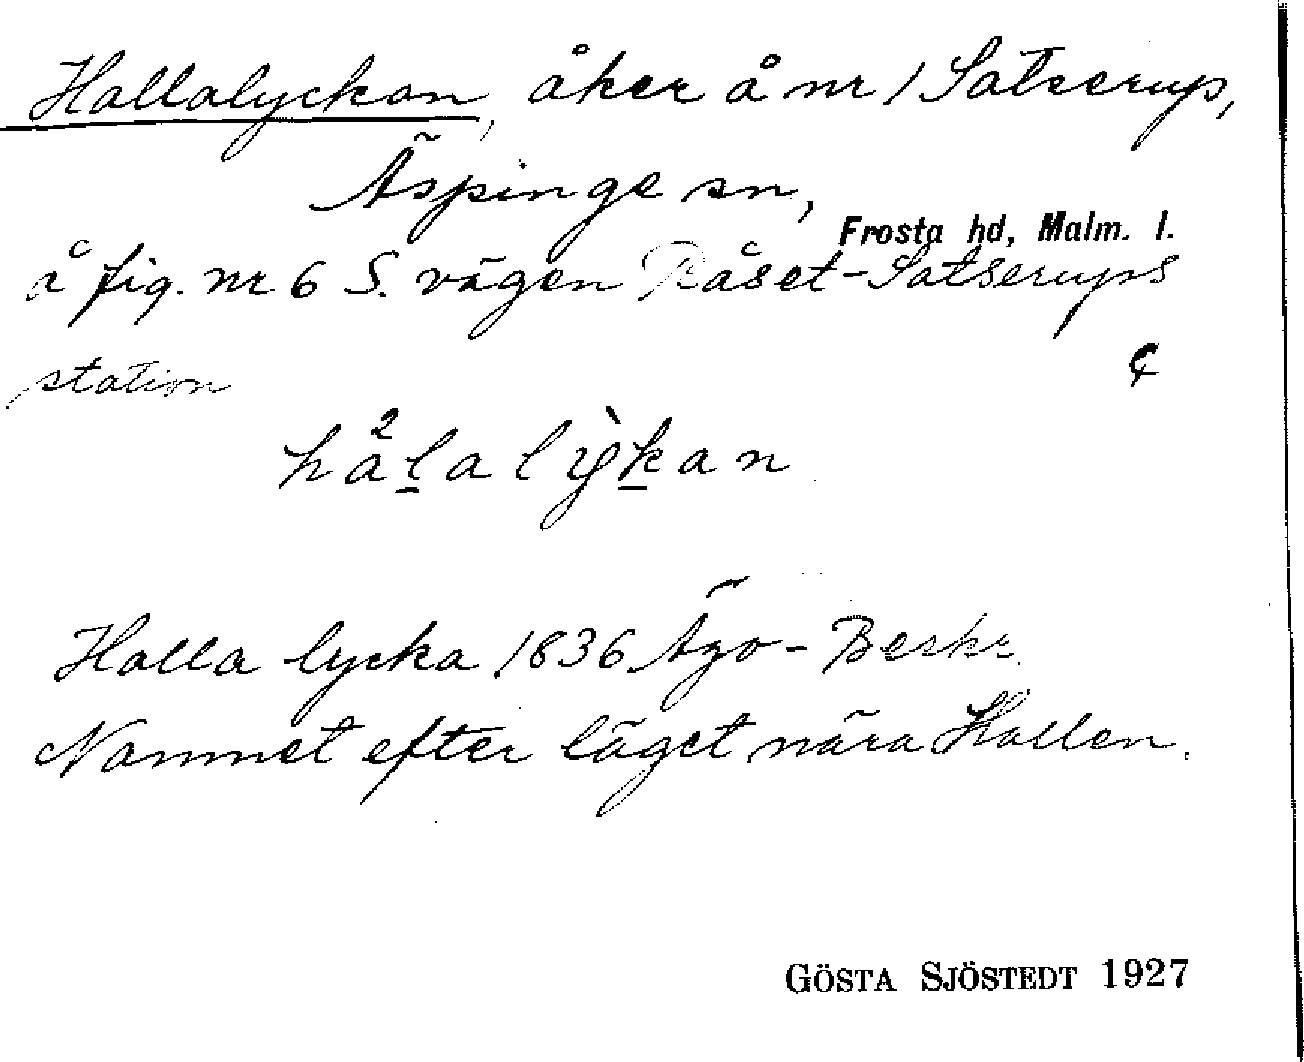 Hallalyckan, åker å nr 1 Satserup,
Äspinge sn,
Frosta hd, Malm. l.
å fig. nr 6 S. vägen Råset-Satserups
station
hålalỳkan
Halla lycka 1836 Ägo-Beskr.
Namnet efter läget nära Hallen.
GÖSTA SJÖSTEDT 1927